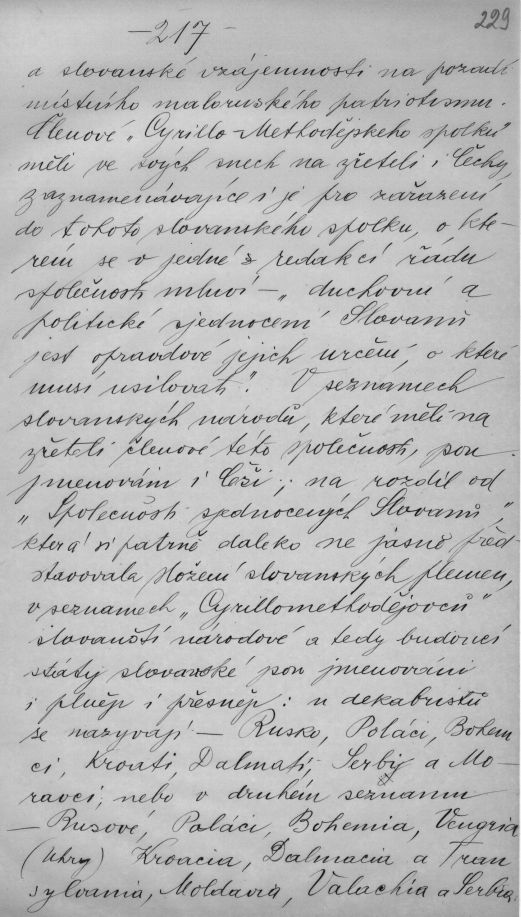 229
-217-
a slovanské vzájemnosti na pozadí
místního maloruského patriotismu.
Členové „Cyrillo-Methodějského spolku"
měli ve svých snech na zřeteli i Čechy,
zaznamenávajíce i je pro zařazení
do tohoto slovanského spolku, o kte-
rém se v jedné z redakcí řádu
společnosti mluví – „duchovní a
politické sjednocení Slovanů
jest opravdové jejich určení, o které
musí usilovati". V seznamech
slovanských národů, které měli na
zřeteli členové této společnosti, jsou
jmenováni i Češi; na rozdíl od
„Společnosti sjednocených Slovanů",
která si patrně daleko ne jasně před-
stavovala složení slovanských plemen,
v seznamech „Cyrillomethodějovců"
slovanští národové a tedy budoucí
státy slovanské jsou jmenováni
i plněji i přesněji: u dekabristů
se nazývají – Rusko, Poláci, Bohem
ci, Kroati, Dalmati, Serby a Mo-
ravci; nebo v druhém seznamu
– Rusové, Poláci, Bohemia, Vengria
(Uhry) Kroacia, Dalmacia a Tran
sylvania, Moldavia, Valachia a Serbia.